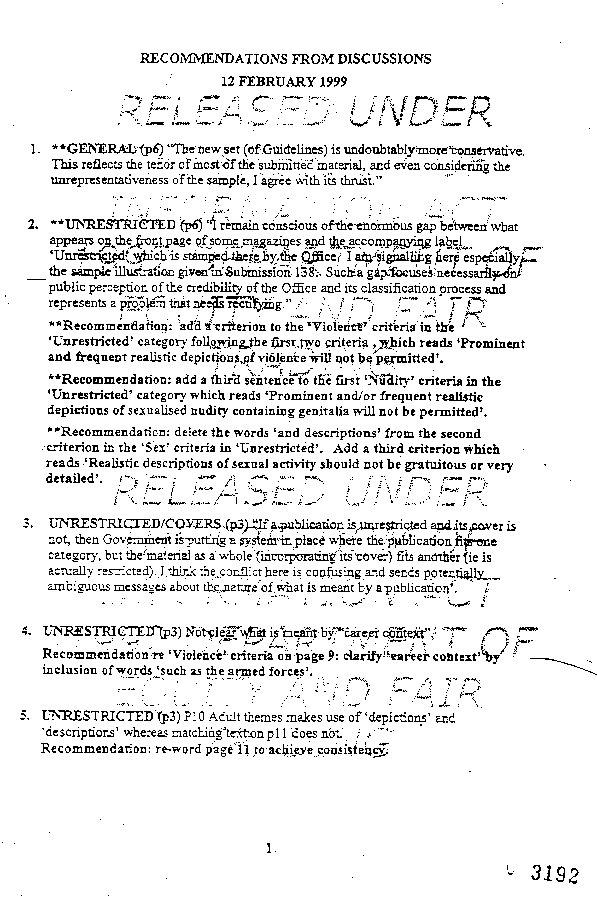 RECOMMENDATIONS FROM DISCUSSIONS
12 FEBRUARY 1999
RELEASED UNDER
1. **GENERAL (p6) "The new set (of Guidelines) is undoubtably more conservative.
This reflects the tenor of most of the submitted material, and even considering the
unrepresentativeness of the sample, I agree with its thrust."
2. **UNRESTRICTED (p6) "I remain conscious of the enormous gap between what
appears on the front page of some magazines and the accompanying label
'Unrestricted' which is stamped there by the Office. I am signalling here especially
the sample illustration given in Submission 138. Such a gap focuses necessarily on
public perception of the credibility of the Office and its classification process and
represents a problem that needs rectifying."
AND FAIR
**Recommendation: add a criterion to the 'Violence' criteria in the
'Unrestricted' category following the first two criteria, which reads 'Prominent
and frequent realistic depictions of violence will not be permitted'.
**Recommendation: add a third sentence to the first 'Nudity' criteria in the
'Unrestricted' category which reads 'Prominent and/or frequent realistic
depictions of sexualised nudity containing genitalia will not be permitted'.
**Recommendation: delete the words 'and descriptions' from the second
criterion in the 'Sex' criteria in 'Unrestricted'. Add a third criterion which
reads 'Realistic descriptions of sexual activity should not be gratuitous or very
detailed'.
RELEASED UNDER
3. UNRESTRICTED/COVERS (p3) "If a publication is unrestricted and its cover is
not, then Government is putting a system in place where the publication fits one
category, but the material as a whole (incorporating its cover) fits another (ie is
actually restricted). I think the conflict here is confusing and sends potentially
ambiguous messages about the nature of what is meant by a publication'.
4. UNRESTRICTED (p3) Not clear what is meant by "career context".
OF
Recommendation re 'Violence' criteria on page 9: clarify "career context" by
inclusion of words 'such as the armed forces'.
AND FAIR
5. UNRESTRICTED (p3) P10 Adult themes makes use of 'depictions' and
'descriptions' whereas matching text on p11 does not.
Recommendation: re-word page 11 to achieve consistency.
1
3192